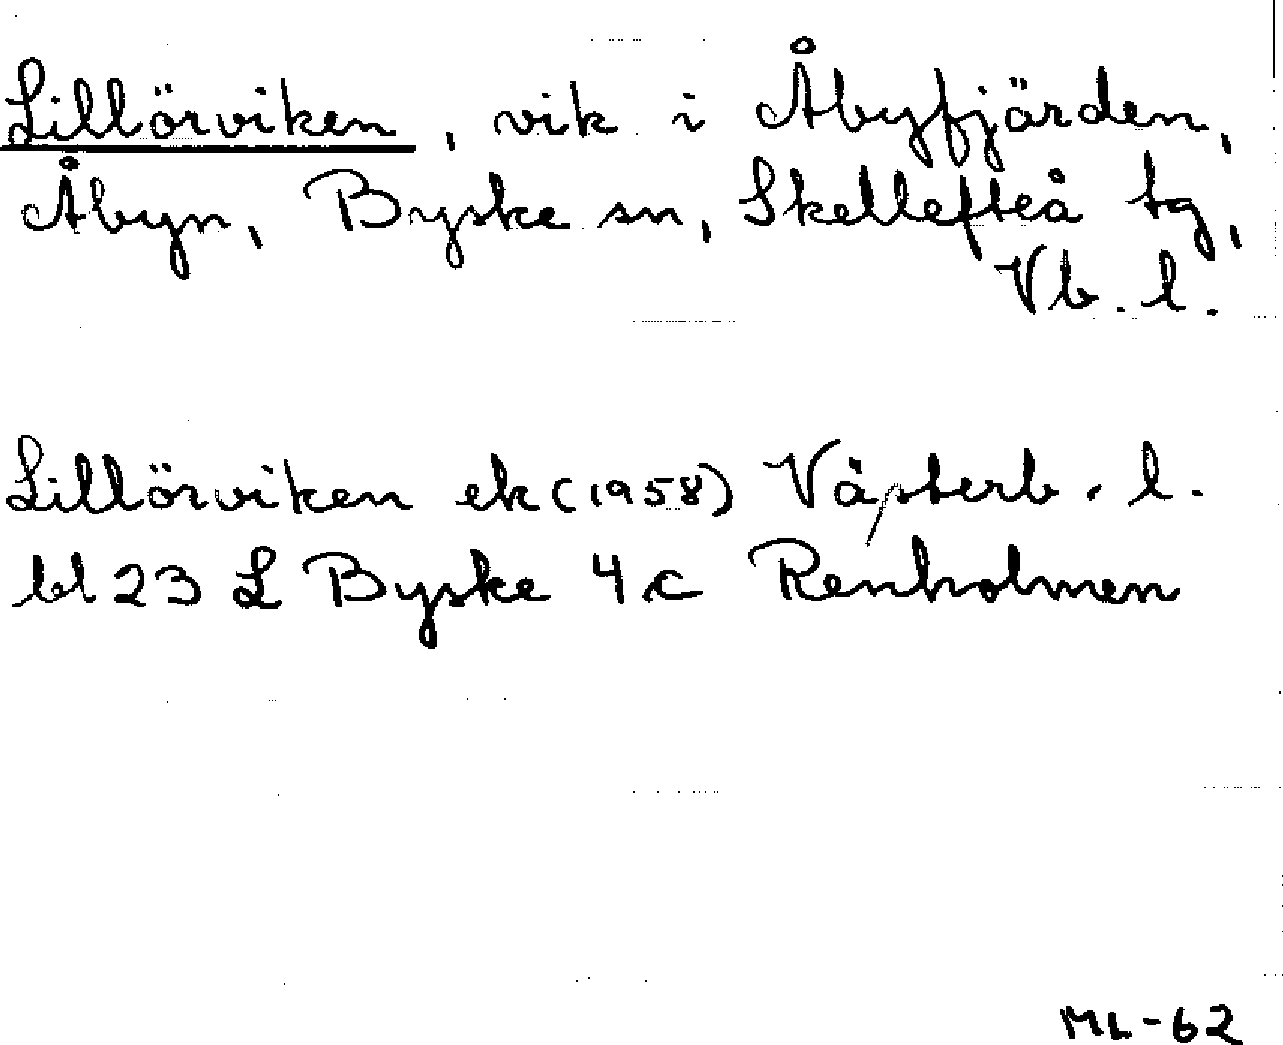 Lillörviken, vik i Åbyfjärden,
Åbyn, Byske sn, Skellefteå tg,
Vb. l.
Lillörviken ek (1958) Västerb. l.
bl 23 L Byske 4 c Renholmen
ML-62